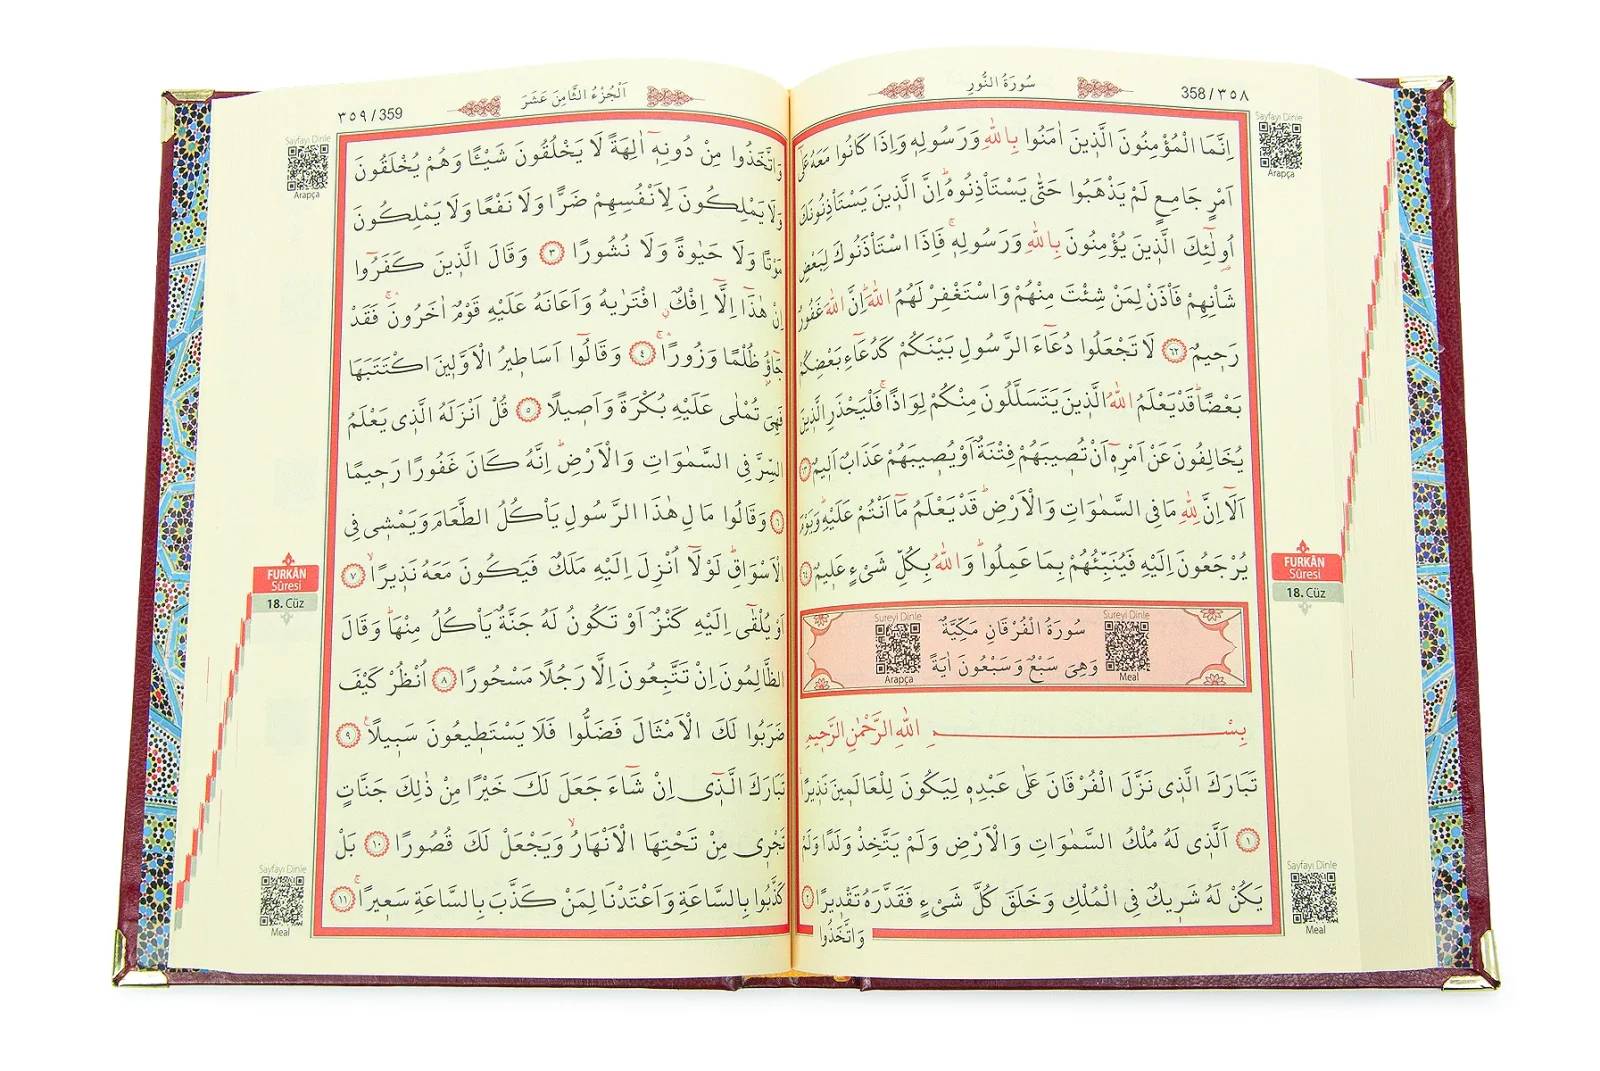 سُورَةُ النُّورِ
358 / ٣٥٨
Sayfayı Dinle
Arapça
اِنَّمَا الْمُؤْمِنُونَ الَّذٖينَ اٰمَنُوا بِاللّٰهِ وَرَسُولِهٖ وَاِذَا كَانُوا مَعَهُ عَلٰٓى
اَمْرٍ جَامِعٍ لَمْ يَذْهَبُوا حَتّٰى يَسْتَأْذِنُوهُ اِنَّ الَّذٖينَ يَسْتَأْذِنُونَكَ
اُولٰٓئِكَ الَّذٖينَ يُؤْمِنُونَ بِاللّٰهِ وَرَسُولِهٖ فَاِذَا اسْتَأْذَنُوكَ لِبَعْضِ
شَأْنِهِمْ فَأْذَنْ لِمَنْ شِئْتَ مِنْهُمْ وَاسْتَغْفِرْ لَهُمُ اللّٰهَ اِنَّ اللّٰهَ غَفُورٌ
رَحٖيمٌ ٦٢ لَا تَجْعَلُوا دُعَٓاءَ الرَّسُولِ بَيْنَكُمْ كَدُعَٓاءِ بَعْضِكُمْ
بَعْضًا قَدْ يَعْلَمُ اللّٰهُ الَّذٖينَ يَتَسَلَّلُونَ مِنْكُمْ لِوَاذًا فَلْيَحْذَرِ الَّذٖينَ
يُخَالِفُونَ عَنْ اَمْرِهٖٓ اَنْ تُصٖيبَهُمْ فِتْنَةٌ اَوْ يُصٖيبَهُمْ عَذَابٌ اَلٖيمٌ ٦٣
اَلَٓا اِنَّ لِلّٰهِ مَا فِى السَّمٰوَاتِ وَالْاَرْضِ قَدْ يَعْلَمُ مَٓا اَنْتُمْ عَلَيْهِ وَيَوْمَ
يُرْجَعُونَ اِلَيْهِ فَيُنَبِّئُهُمْ بِمَا عَمِلُوا وَاللّٰهُ بِكُلِّ شَىْءٍ عَلٖيمٌ ٦٤
FURKÂN
Sûresi
18. Cüz
Sureyi Dinle
Meal
سُورَةُ الْفُرْقَانِ مَكِّيَّةٌ
وَهِىَ سَبْعٌ وَسَبْعُونَ اٰيَةً
Sureyi Dinle
Arapça
بِسْــــمِ اللّٰهِ الرَّحْمٰنِ الرَّحٖيمِ
تَبَارَكَ الَّذٖى نَزَّلَ الْفُرْقَانَ عَلٰى عَبْدِهٖ لِيَكُونَ لِلْعَالَمٖينَ نَذٖيرًا
١ اَلَّذٖى لَهُ مُلْكُ السَّمٰوَاتِ وَالْاَرْضِ وَلَمْ يَتَّخِذْ وَلَدًا وَلَمْ
يَكُنْ لَهُ شَرٖيكٌ فِى الْمُلْكِ وَخَلَقَ كُلَّ شَىْءٍ فَقَدَّرَهُ تَقْدٖيرًا ٢
وَاتَّخَذُوا
Sayfayı Dinle
Meal
اَلْجُزْءُ الثَّامِنَ عَشَرَ
٣٥٩ / 359
Sayfayı Dinle
Arapça
وَاتَّخَذُوا مِنْ دُونِهٖٓ اٰلِهَةً لَا يَخْلُقُونَ شَيْـًٔا وَهُمْ يُخْلَقُونَ
وَلَا يَمْلِكُونَ لِاَنْفُسِهِمْ ضَرًّا وَلَا نَفْعًا وَلَا يَمْلِكُونَ
مَوْتًا وَلَا حَيٰوةً وَلَا نُشُورًا ٣ وَقَالَ الَّذٖينَ كَفَرُٓوا
اِنْ هٰذَٓا اِلَّٓا اِفْكٌ افْتَرٰيهُ وَاَعَانَهُ عَلَيْهِ قَوْمٌ اٰخَرُونَ فَقَدْ
جَٓاؤُ ظُلْمًا وَزُورًا ٤ وَقَالُٓوا اَسَاطٖيرُ الْاَوَّلٖينَ اكْتَتَبَهَا
فَهِىَ تُمْلٰى عَلَيْهِ بُكْرَةً وَاَصٖيلًا ٥ قُلْ اَنْزَلَهُ الَّذٖى يَعْلَمُ
السِّرَّ فِى السَّمٰوَاتِ وَالْاَرْضِ اِنَّهُ كَانَ غَفُورًا رَحٖيمًا
٦ وَقَالُوا مَالِ هٰذَا الرَّسُولِ يَأْكُلُ الطَّعَامَ وَيَمْشٖى فِى
الْاَسْوَاقِ لَوْلَٓا اُنْزِلَ اِلَيْهِ مَلَكٌ فَيَكُونَ مَعَهُ نَذٖيرًا ٧
اَوْ يُلْقٰٓى اِلَيْهِ كَنْزٌ اَوْ تَكُونُ لَهُ جَنَّةٌ يَأْكُلُ مِنْهَا وَقَالَ
الظَّالِمُونَ اِنْ تَتَّبِعُونَ اِلَّا رَجُلًا مَسْحُورًا ٨ اُنْظُرْ كَيْفَ
ضَرَبُوا لَكَ الْاَمْثَالَ فَضَلُّوا فَلَا يَسْتَطٖيعُونَ سَبٖيلًا ٩
تَبَارَكَ الَّذٖٓى اِنْ شَٓاءَ جَعَلَ لَكَ خَيْرًا مِنْ ذٰلِكَ جَنَّاتٍ
تَجْرٖى مِنْ تَحْتِهَا الْاَنْهَارُ وَيَجْعَلْ لَكَ قُصُورًا ١٠ بَلْ
كَذَّبُوا بِالسَّاعَةِ وَاَعْتَدْنَا لِمَنْ كَذَّبَ بِالسَّاعَةِ سَعٖيرًا ١١
FURKÂN
Sûresi
18. Cüz
Sayfayı Dinle
Meal